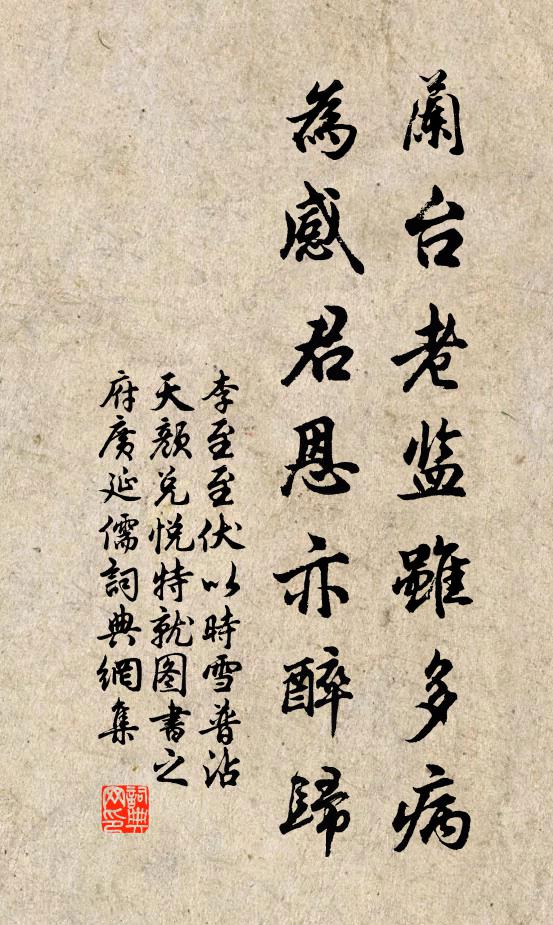 蘭台老监雖多病
為感君恩亦醉歸
李至至伏以時雪普沾
天顏兑悅特就图書之
府廣延儒詞典網集
詞典网印